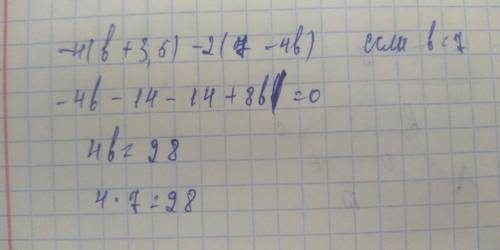 -4(в + 3,5) - 2(7 - 4в) если в = 7
-4в - 14 - 14 + 8в = 0
4в = 28
4 · 7 = 28